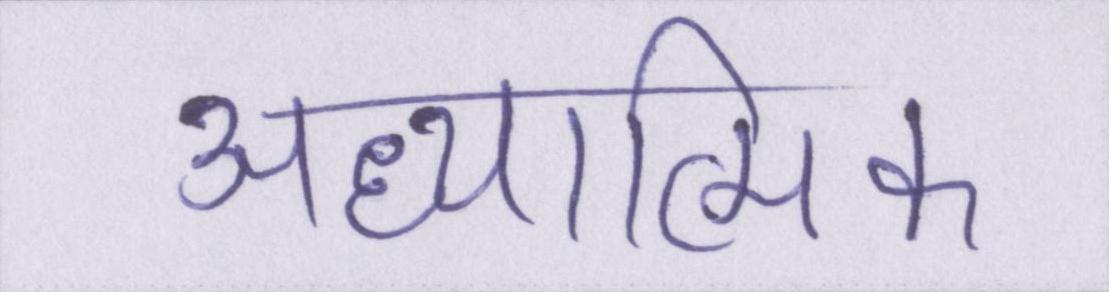 अध्यात्मिक